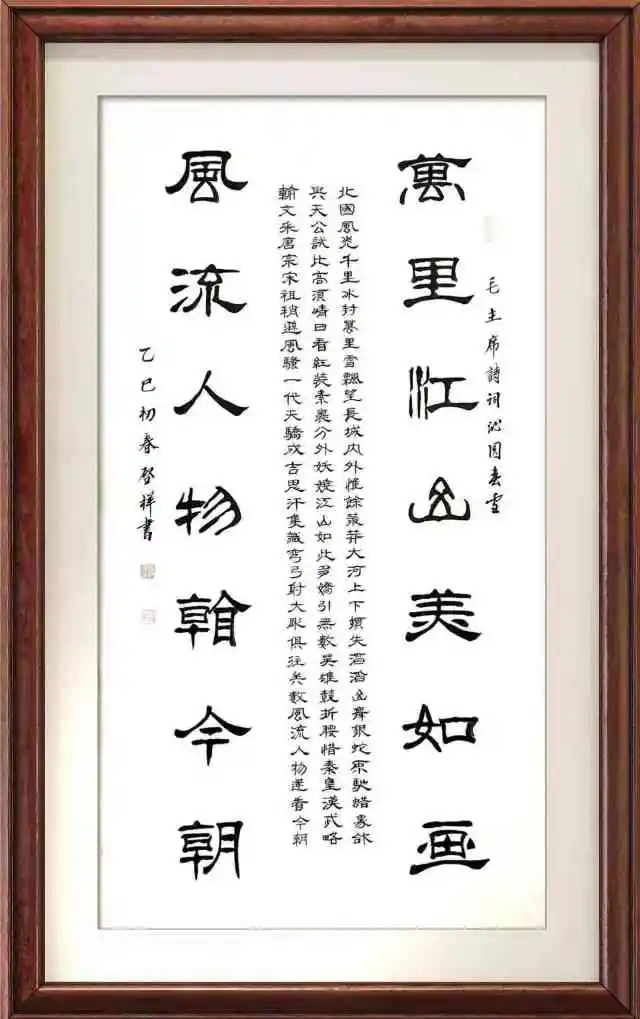 毛主席詩词沁园春雪
萬里江山美如画
北國風光千里冰封萬里雪飄望長城內外惟餘莽莽大河上下頓失滔滔山舞銀蛇原馳蜡象欲
與天公試比高須晴日看紅裝素裹分外妖嬈江山如此多嬌引無數英雄競折腰惜秦皇漢武略
輸文采唐宗宋祖稍遜風騷一代天驕成吉思汗隻識彎弓射大雕俱往矣數風流人物還看今朝
風流人物今朝
乙巳初春啓祥書